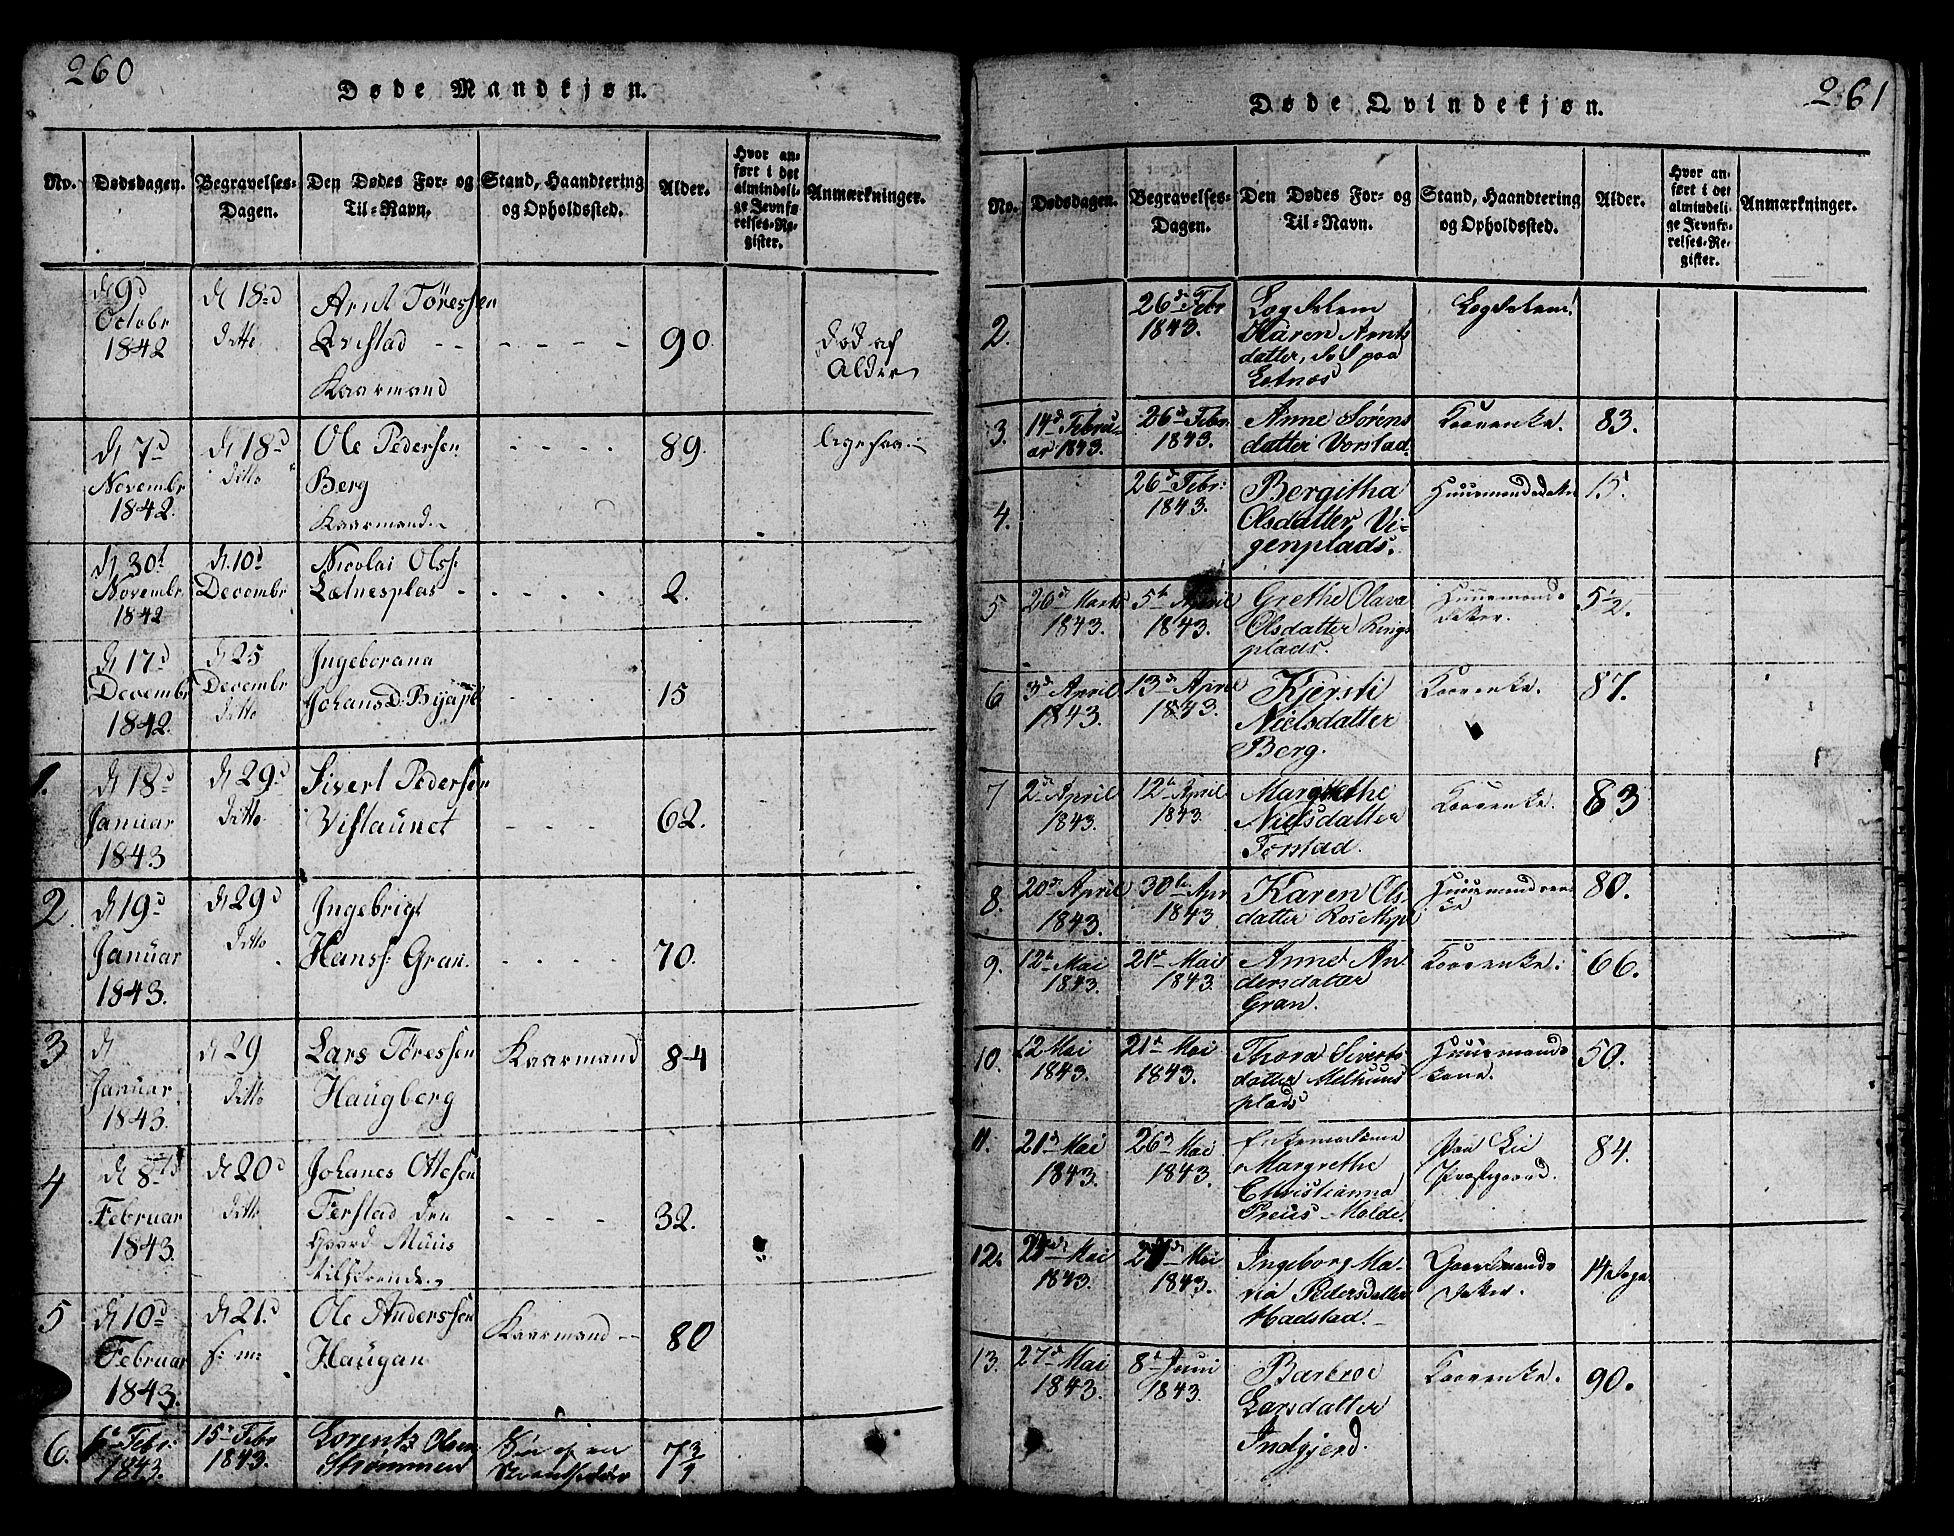 260
Døde Mandkjøn.
No.
Dødsdagen.
Begravelses-
Dagen.
Den Dødes For- og
Til-Navn.
Stand, Haandtering
og Opholdssted.
Alder.
Hvor an-
ført i det
almindeli-
ge Jevnfø-
relses-Re-
gister.
Anmærkninger.
d 9d
Octobr
1842
d 18d
ditto
Arnt Tøressen
Qvistad
Kaarmand
90
Død af
Alder
d 7d
Novembr
1842.
d 18d
ditto
Ole Pedersen
Berg
Kaarmand
89.
ligesaa
d 30t
Novembr
1842
d. 10d
Decembr
Nicolai Olss:
Letnesplas
2.
d 17d
Decembr
1842.
d 25
Decembr
ditto
Ingeborana
Johansd.
15
1.
d 18d
Januar
1843
d 29d
ditto
Sivert Pedersen
Vistaunet
62.
2
d 19d
Januar
1843.
d 29d
ditto
Ingebrigt
Hanss: Gran.
70.
3
d
Januar
1843.
d 29
ditto
Lars Tøressen
Haugberg
Kaarmand
84
4
d 8d
Februar
1843.
d 20d
ditto
Johanes Ottesen
Ferstad den
Gaard Muus
tilhørende
32.
5
d 10d
Februar
1843.
d 21d
s: m:
Ole Anderssen
Haugan
Kaarmand
80
6.
Febr:
1843.
15d Febr
1843.
Lorentz Olsen
Strømmen
Søn af en
7 3/4
261
Døde Qvindekjøn.
No.
Dødsdagen.
Begravelses-
Dagen.
Den Dødes For- og
Til-Navn.
Stand, Haandtering
og Opholdssted.
Alder.
Hvor an-
ført i det
almindeli-
ge Jevnfø-
relses-Re-
gister.
Anmærkninger.
2.
26d Febr
1843.
Legdelem
Karen Arnts
datter, død paa
Letnæs
Legdelem
3.
14d Febru-
ar 1843.
26d Febr.
1843.
Anne Sørens
datter Vorstad.
Kaarenke.
83.
4.
26d Febr:
1843.
Bergitha
Olsdatter Vi-
genplads.
Huusmandsdatter
15.
5
26d Marts
1843.
5te April
1843.
Grethe Olava
Olsdatter Rings
plads.
Huusmands
datter.
5 1/2.
6
3d April
1843.
13d April
1843.
Kjersti
Nielsdatter
Berg.
Kaarenke.
87.
7
2d April
1843.
12te April
1843.
Margrethe
Nielsdatter
Torstad.
Kaarenke.
83
8.
20d April
1843.
30te Apr
1843
Karen Ols-
datter
Huusmandsen
ke
80.
9.
12te Mai
1843.
21d Mai
1843.
Anne An
dersdatter
Gran.
Kaarenke.
66.
10.
12 Mai
1843.
21d Mai
1843.
Thora Siverts
datter Melhuus
plads
Huusmands
kone.
50.
11.
21d Mai
1843.
26d Mai
1843.
Margrethe
Christianna
Preus Molde.
paa Lie
Præstegaard.
84.
12.
Mai
1843.
Mai
1843.
Ingeborg Ma-
ria Pedersdatter
Hadstad.
Gaardmands
datter.
14 dage
13.
27d Mai
1843.
8d Juni
1843.
Barbroe
Larsdatter
Indgjerd.
Kaarenke.
90.